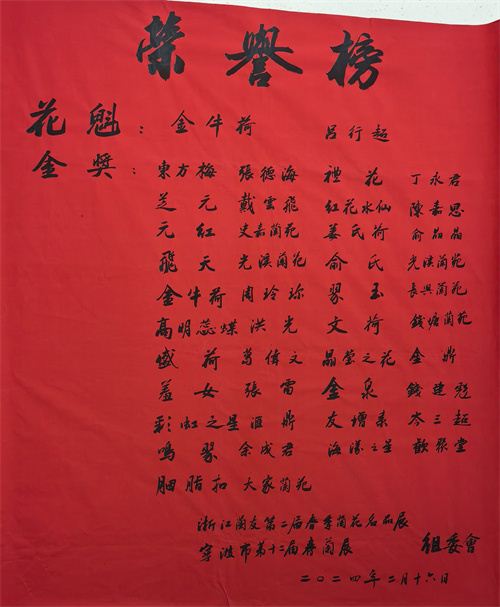 榮譽榜
花魁：金牛荷 吕行超
金獎：東方梅 張德海 禮花 丁永君
芝元 戴雲飛 紅花水仙 陳嘉思
元紅 史嘉蘭苑 姜氏荷 俞晶晶
飛天 光溪蘭苑 俞氏 光溪蘭苑
金牛荷 周玲珍 翠玉 長興蘭苑
高明蕊蝶 洪光 文荷 錢塘蘭苑
盛荷 葛偉文 晶瑩之花 金鼎
羞女 張雷 金泉 錢建
彩虹之星 匯鼎 友增素 岑三超
鳴翠 余成君 海漾之星 歡聚堂
胭脂扣 大家蘭苑
浙江蘭友第二届春季蘭花名品展
寧波市第十二届春蘭展 組委會
二〇二四年二月十六日